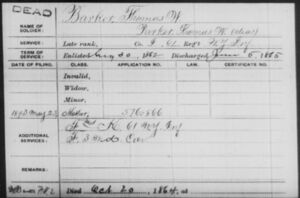 DEAD
NAME OF SOLDIER:
Barker, Thomas W.
Parker, Thomas W. (alias)
SERVICE:
Late rank, Co. I, 61 Regt NY Inf
TERM OF SERVICE:
Enlisted Aug 30, 1862 Discharged June 5, 1865
DATE OF FILING. CLASS. APPLICATION NO. CERTIFICATE NO.
Invalid,
Widow,
Minor,
1893 May 23 Mother, 576566
ADDITIONAL SERVICES:
K. 61 NY Inf
REMARKS:
Died Oct 20, 1864, at